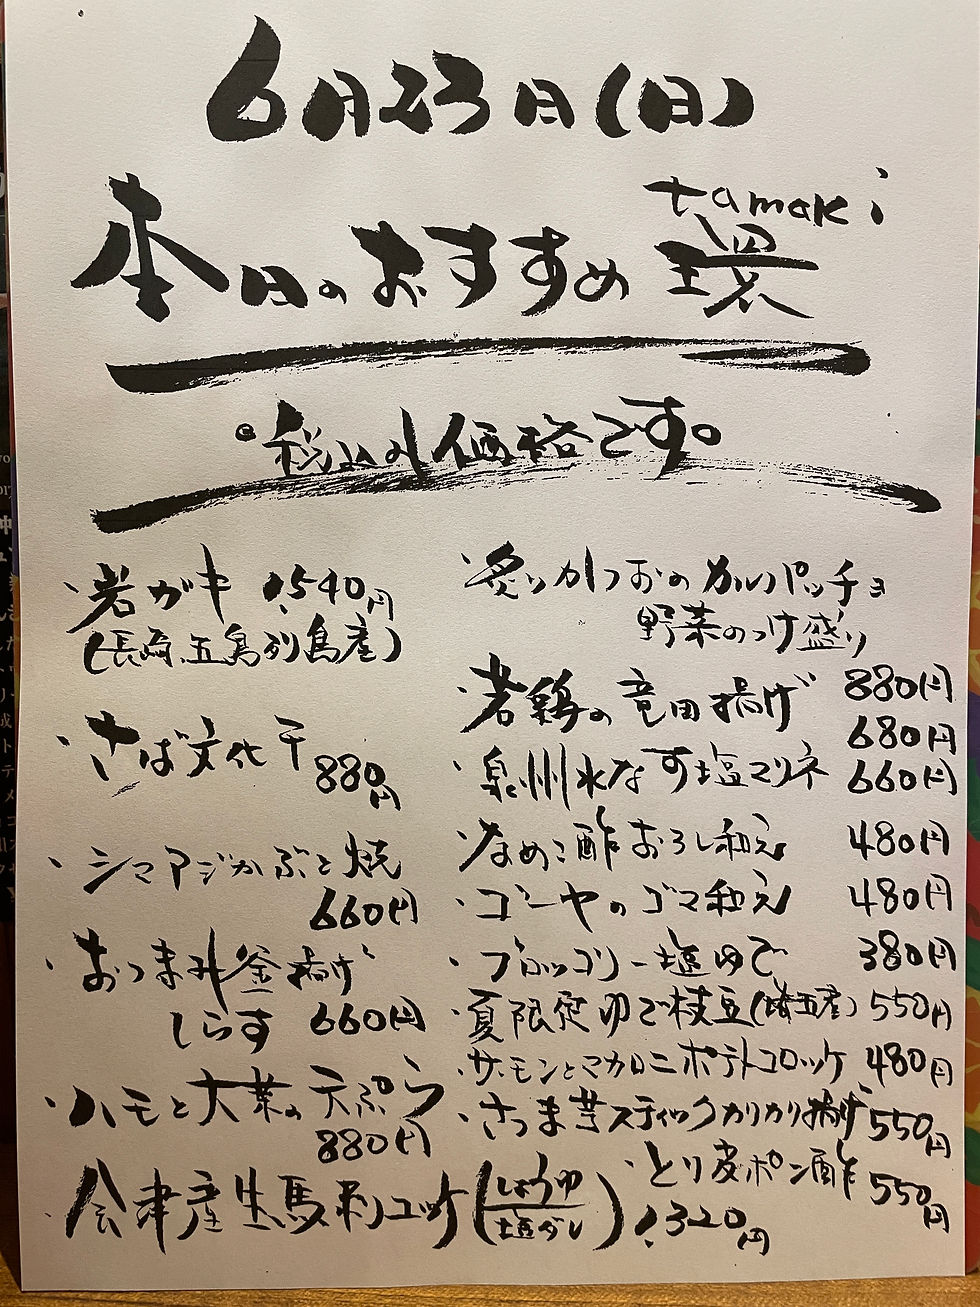 6月23日(日)
本日のおすすめ 環
tamaki
◎税込み価格です。
・岩ガキ 1,540円
(長崎、五島列島産)
・さば文化干
880円
・シマアジかぶと焼
660円
・おつまみ釜揚げ
しらす 660円
・ハモと大葉の天ぷら
880円
・会津産生馬刺ユッケ(しょうゆ
塩だし) 1,320円
・炙りかつおのカルパッチョ
野菜のつけ盛り
880円
・若鶏の竜田揚げ
680円
・泉州水なす塩マリネ 660円
・なめこ酢おろし和え 480円
・ゴーヤのゴマ和え 480円
・ブロッコリー塩ゆで 380円
・夏限定ゆで枝豆(埼玉産) 550円
・サーモンとマカロニポテトコロッケ 480円
・さつま芋スティックカリカリ揚げ 550円
・とり皮ポン酢 550円